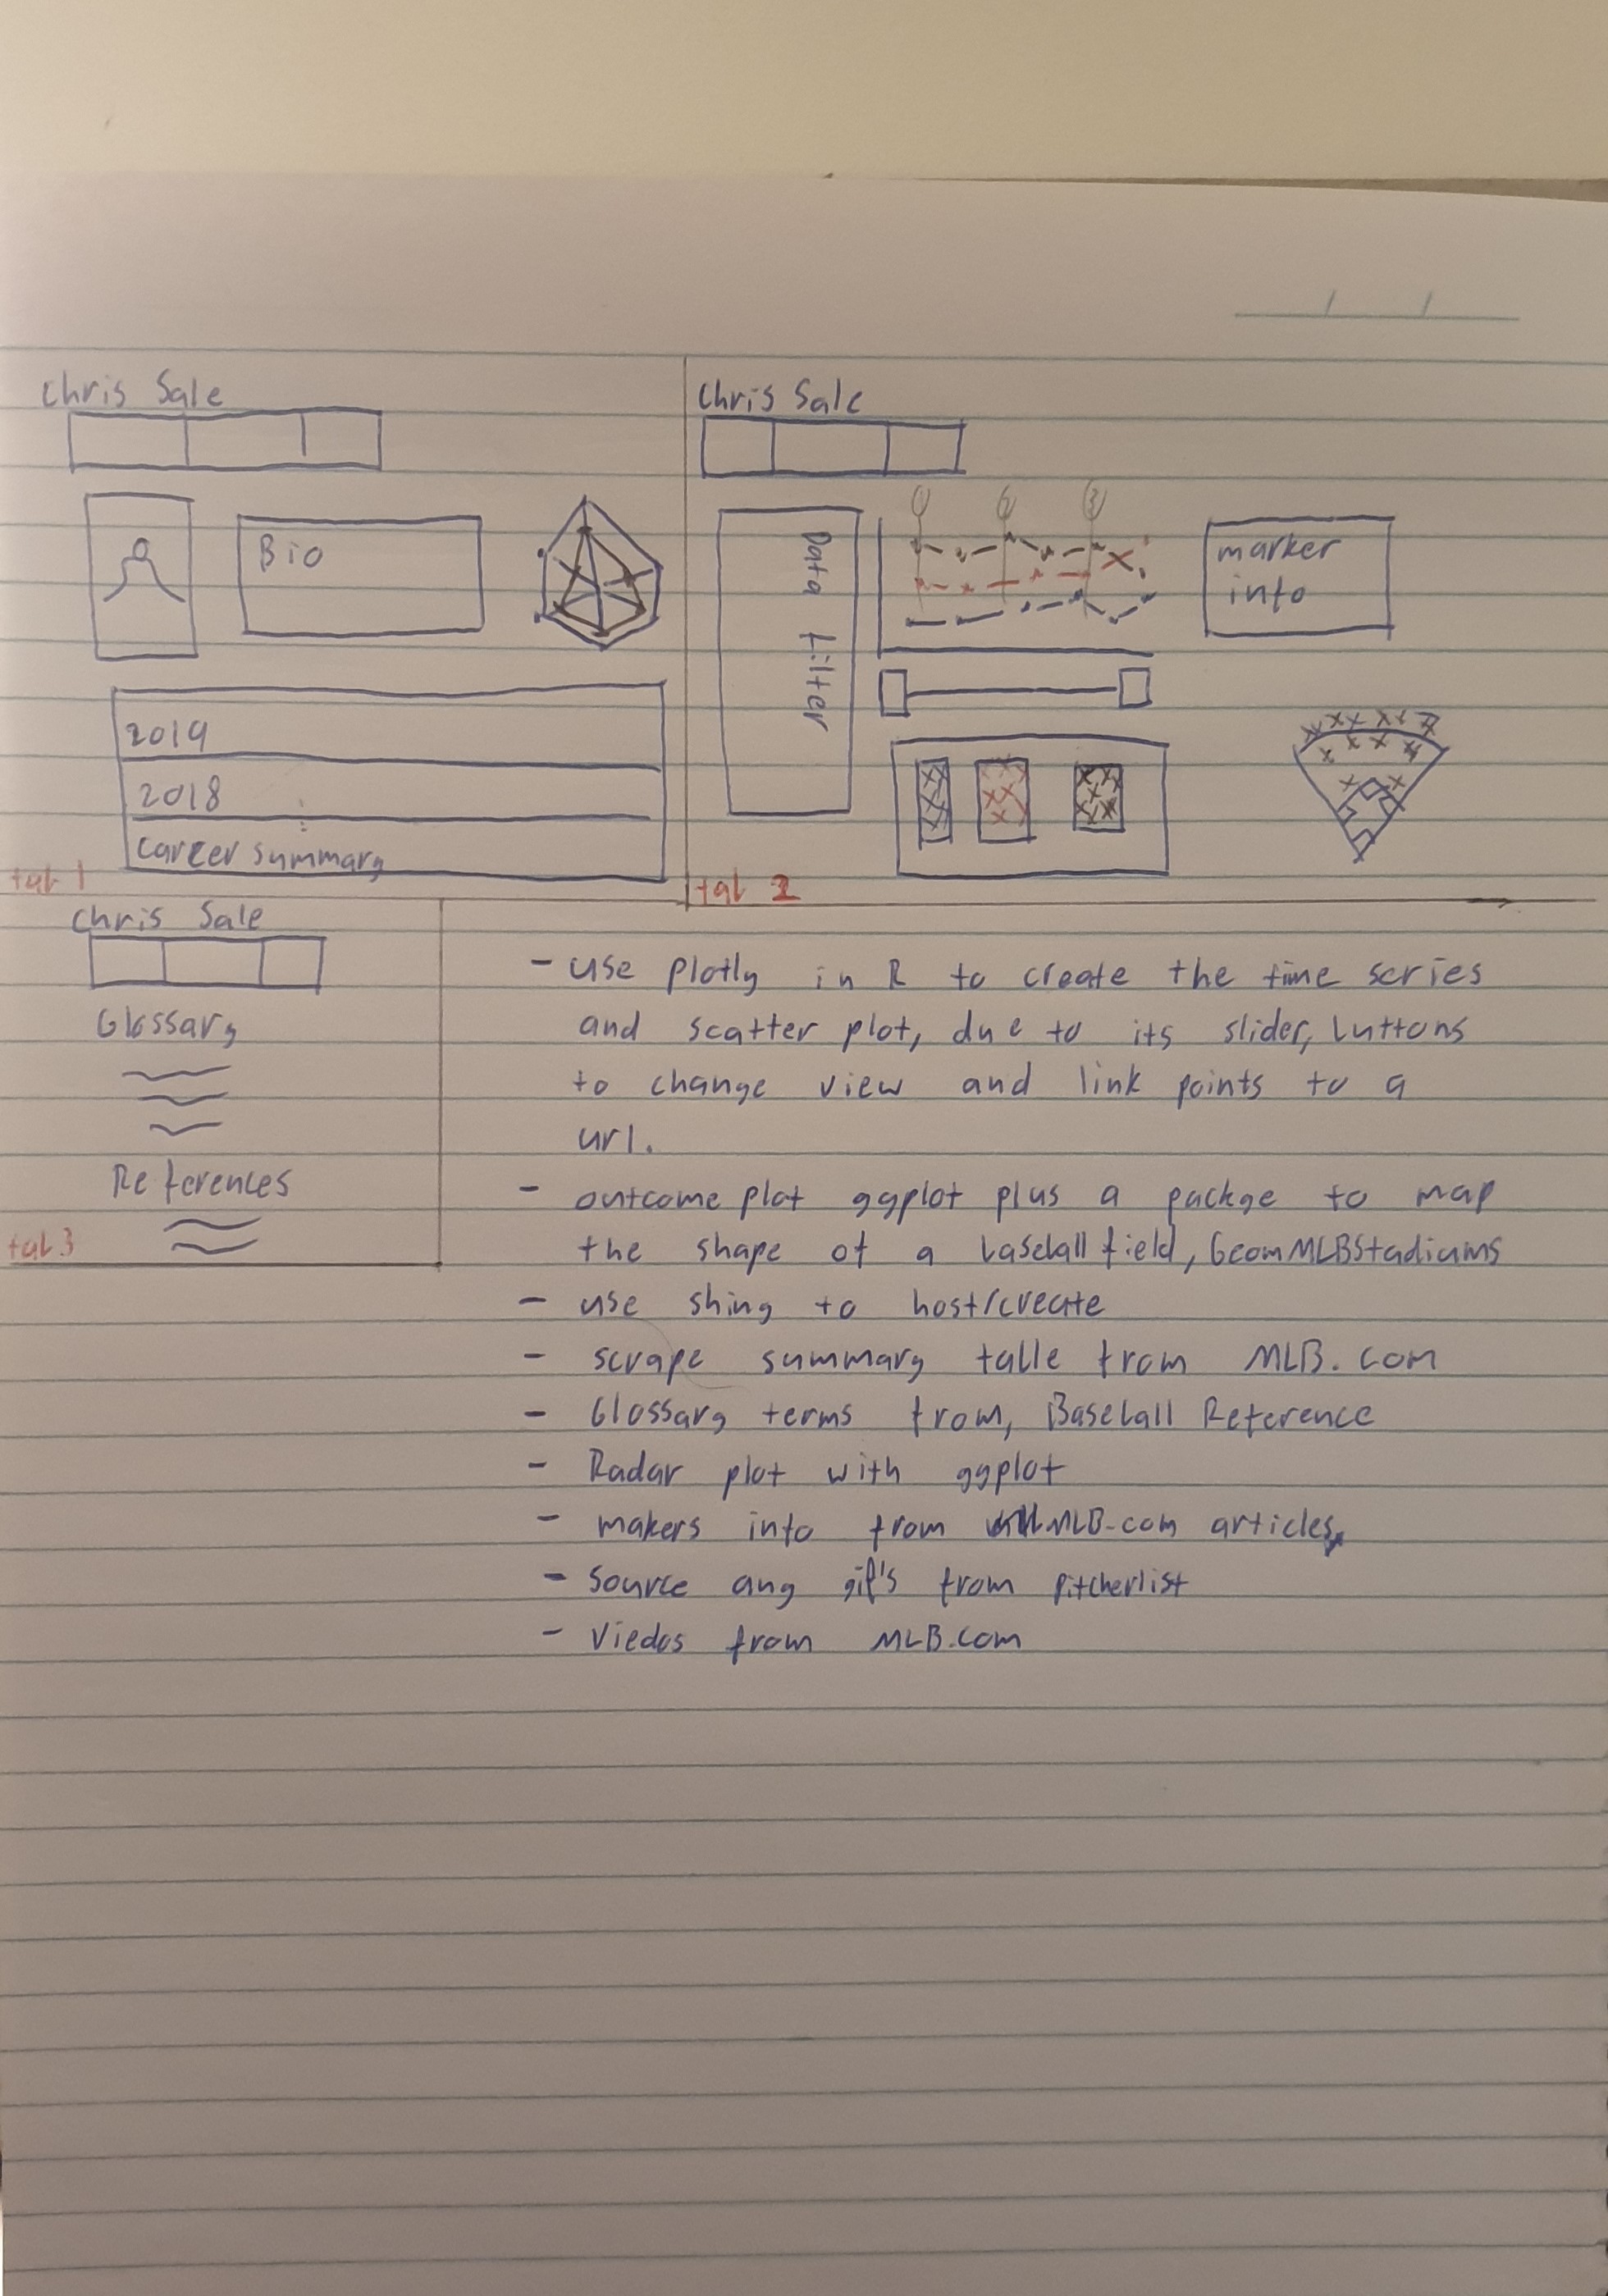 Chris Sale
Bio
2019
2018
Career summary
tab 1
Chris Sale
Data filter
1 2 3
marker
info
tab 2
Chris Sale
Glossary
References
tab 3
- use plotly in R to create the time series
and scatter plot, due to its slider, buttons
to change view and link points to a
url.
- outcome plot ggplot plus a packge to map
the shape of a baseball field, GeomMLBStadiums
- use shiny to host/create
- scrape summary table from MLB.com
- Glossary terms from, Baseball Reference
- Radar plot with ggplot
- makers info from MLB.com articles
- Source any gif's from pitcherlist
- Viedos from MLB.com